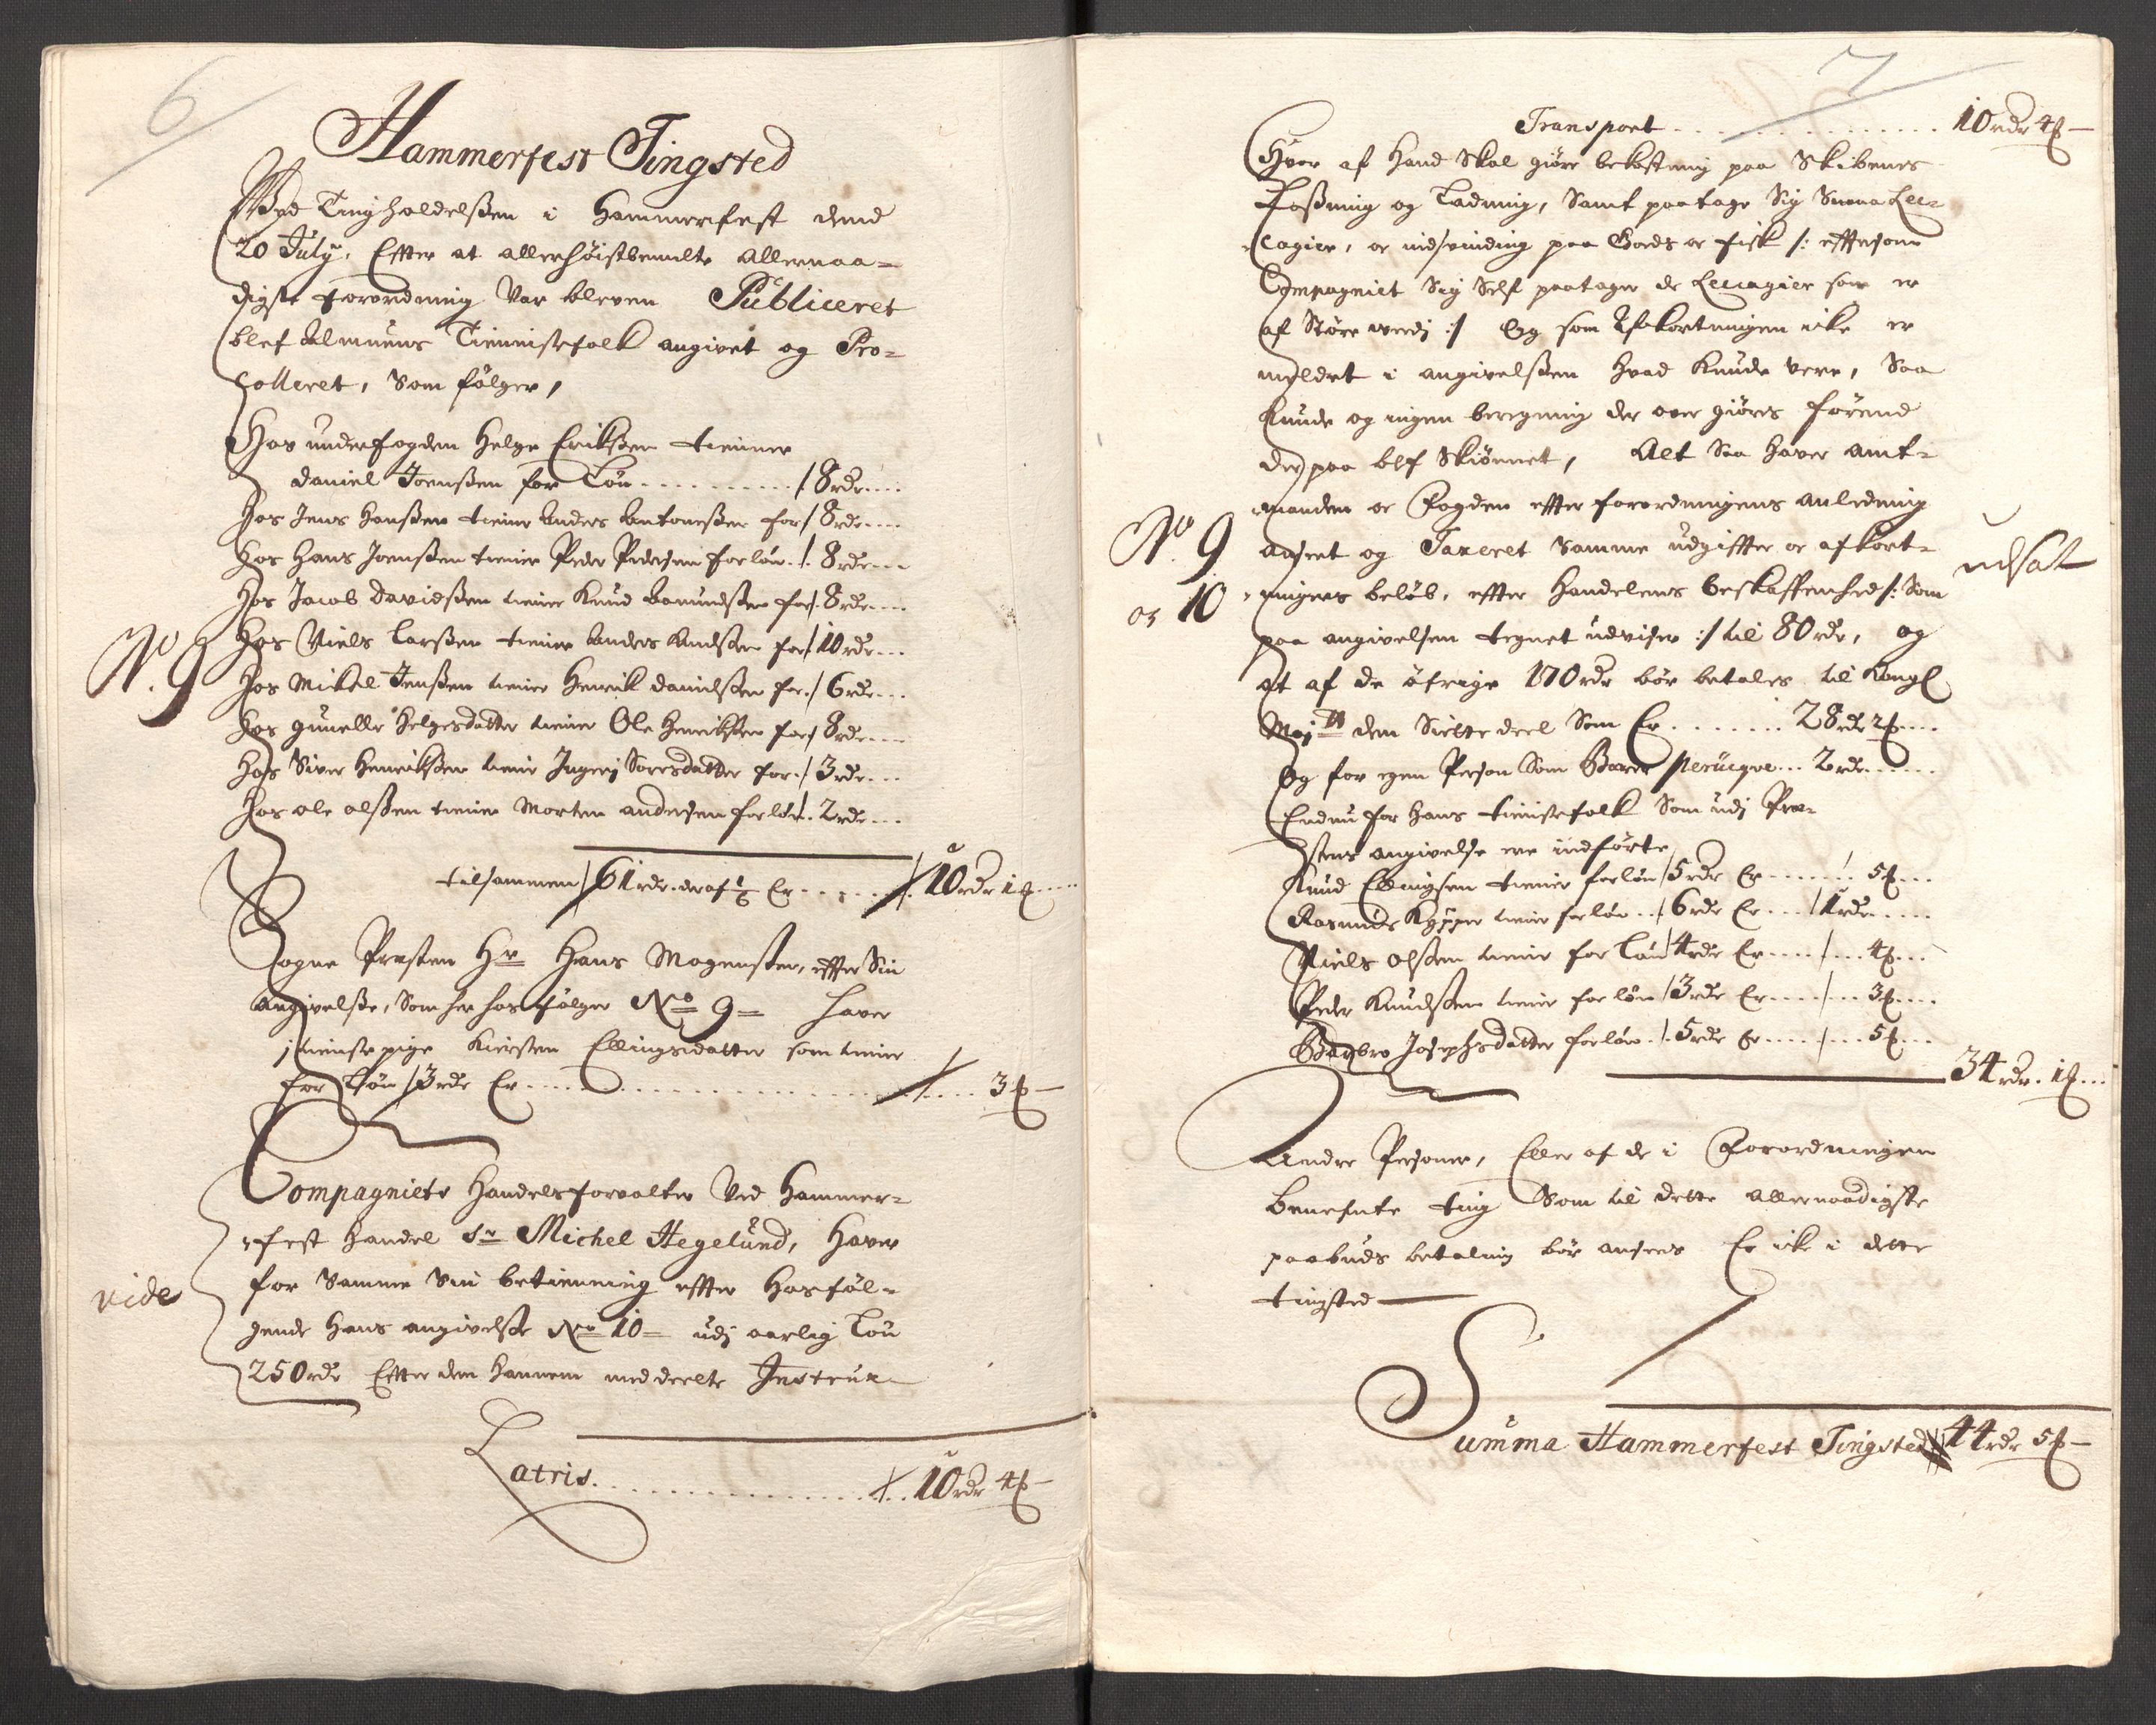 6
Hammerfest Tingsted
Wed Tingholdelßen i Hammerfest dend
20 July, Effter at allerhöistbemelte Allernaa-
digste forordning War bleven Publiceret
blef Almuens Tienistefolk angivet og Pro-
colleret, Som fölger,
Hos underfogden Helge Erikßen tienner
Daniel Joenßen for Lön /8 rdr
Hos Jens Hanßen tiener Anders Antonißen for /8 rdr
Hos Hans Joenßen tiener Peder Pedersen for lön / 8 rdr
Hos Jacob Davidßen tiener Knud Amundßen for /8 rdr
No. 9
Hos Niels Larßen tiener Anders Knudßen for /10 rdr
Hos Mikel Jenßen tiener Henrik Danielßen for / 6 rdr
Hos Gunelle Helgesdatter tiener Ole Henrikßen for / 8 rdr
Hos Siver Henrikßen tiener Ingeri Soresdatter for / 3 rdr
Hos ole olßen tiener Morten andersen for lön / 2 rdr
tilsammen / 61 rdr. deraf 1/6 Er / 10 rdr 1 ß
Sogne Presten Hr Hans Mogensßen, effter Sin
Angivelße, Som her hos fölger No 9 haver
1 tieniste pige Kiersten Ellingsdatter som tiener
for Lön / 3 rdr Er / 3 ß
Compagniets Handelsforvalter Ved Hammer-
fest Handel Sr Michel Hegelund, Haver
vide
for Samme Sin betienning effter Hosföl-
gende Hans angivelße No 10 udj aarlig Lön
250 rdr Efter den Hannem meddeelte Instrux
Latris / 10 rdr 4 ß
7
Transport 10 rdr 4 ß
Hvor af Hand Skal giöre bekostning paa Skibenes
Loßning og Ladning, Samt paatage Sig Smaa Lec-
cagier, oc indsvinding paa Gods oc fisk /: effterson
Compagniet Sig Self paatager de Leccagier som er
af Större werdj :/ Og som Afkortningen icke er
meldet i angivelßen hvad Knude vere, Saa
kunde og ingen beregning der over giöres förend
der paa blef Skiönnet, Alt Saa haver Amt-
manden oc Fogden effter forordningens anledning
No. 9
aaseet og Taxeret Samme udgiffter oc afkort-
udsat
og 10
ningers belöb, effter Handelens beskaffenhed /: Som
paa angivelsen tegnet udviser :/ til 80 rdr, og
at af de öfrige 170 rdr bör betales til Kongl
Majtt den Siette deel Som Er 28 rdr 2 ß
Og for egen Person Som Bærer perüqve 2 rdr
Endnu for Hans tienistefolk Som udj Præ-
stens angivelse ere indförte
Knud Ellingsen tiener for lön / 5 rdr Er / 5 ß
Rasmus Kypper tiener for lön / 6 rdr Er / 1 rdr
Niels Olßen tiener for Lön / 4 rdr Er / 4 ß
Peder Knudßen tiener for lön / 3 rdr Er / 3 ß
Bagbro Josephsdatter for lön / 5 rdr Er / 5 ß
34 rdr. 1 ß
Andre Personer, Eller af de i Forordningen
benefnte ting Som til dette allernaadigste
paabuds betaling bör ansees Er icke i dette
tingsted
Summa Hammerfest Tingsted 44 rdr 5 ß